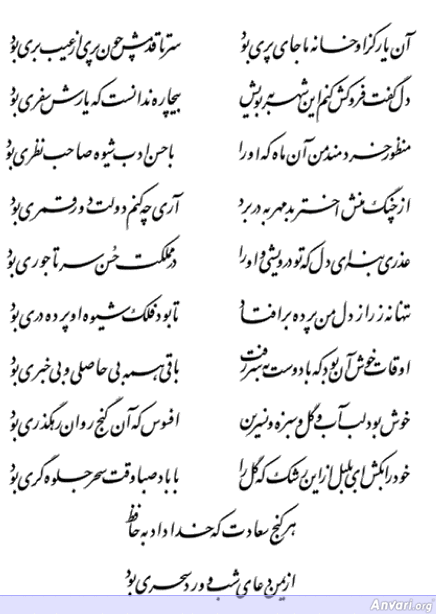 آن یار کز او خانه ما جای پری بود سر تا قدمش چون پری از عیب بری بود
دل گفت فروکش کنم این شهر به بویش بیچاره ندانست که یارش سفری بود
منظور خردمند من آن ماه که او را با حسن ادب شیوه صاحب نظری بود
از چنگ منش اختر بدمهر به در برد آری چه کنم دولت دور قمری بود
عذری بنه ای دل که تو درویشی و او را در مملکت حسن سر تاجوری بود
تنها نه ز راز دل من پرده برافتاد تا بود فلک شیوه او پرده دری بود
اوقات خوش آن بود که با دوست به سر رفت باقی همه بی حاصلی و بی خبری بود
خوش بود لب آب و گل و سبزه و نسرین افسوس که آن گنج روان رهگذری بود
خود را بکش ای بلبل از این رشک که گل را با باد صبا وقت سحر جلوه گری بود
هر گنج سعادت که خدا داد به حافظ
از یمن دعای شب و ورد سحری بود
Anvari.org